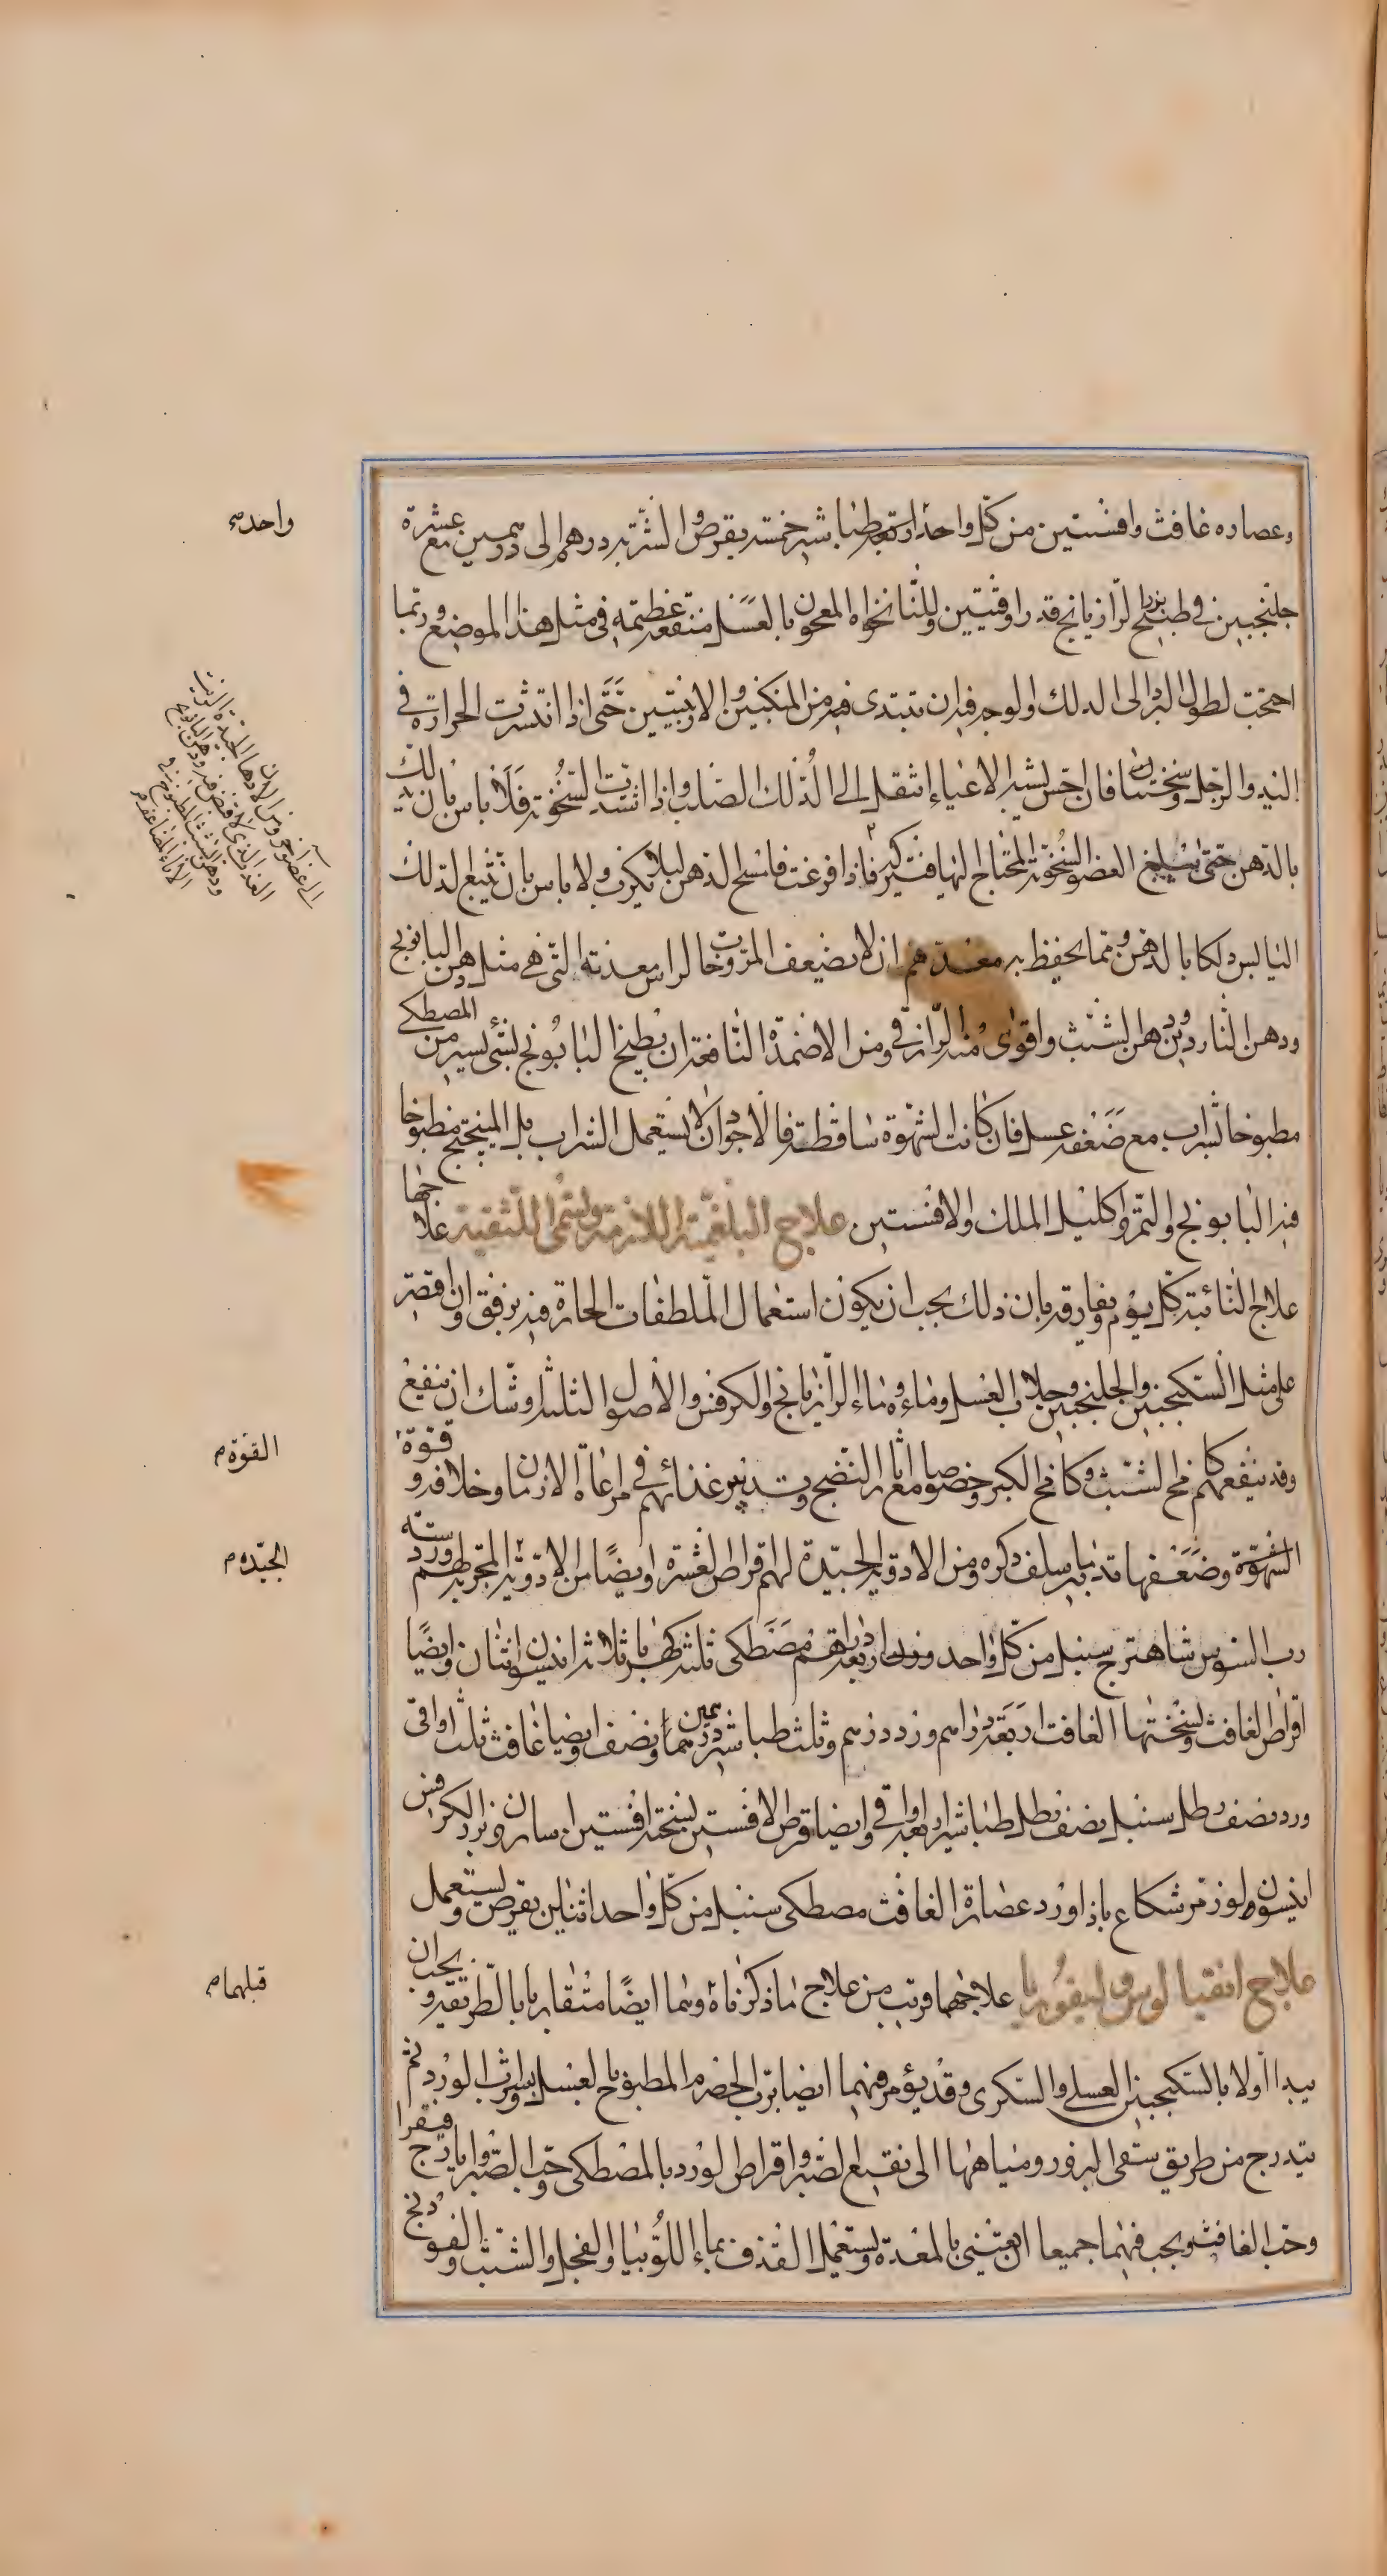 وعصاره غافث وافسنتين من كل واحد اربعة طباشير خمسة يقرص والشربة درهم الى درهمين مع عشرة
جلنجبين في طبيخ بزر الرازيانج قدر اوقيتين وللنانخواه المعجون بالعسل منفعة عظيمة في مثل هذا الموضع وربما
احتجت لطول البرد الى الدلك والوجه فيه ان تبتدى فيه من المنكبين والاربيتين حتى اذا انتشرت الحرارة في
اليد والرجل وسخنتا فان احس بشبه الاعياء انتقل الى الدلك الصلب واذا اشتدت السخونة فلا باس بان يدلك
بالدهن حتى يبلغ العضو السخونة المحتاج اليها فتتركه فاذا فرغت فامسح الدهن ليلا يكرب ولا باس بان تتبع الدلك
اليابس دلكا بالدهن ومما يحفظ به معدهم ان لا يضعف المروخات الراس معدته التي هي مثل دهن البابونج
ودهن الناردين ودهن الشبث واقوى منه الرازقي ومن الاضمدة النافعة ان يطبخ البابونج بشئ يسير من المصطكى
مطبوخا بشراب مع ضعفه عسل فان كانت الشهوة ساقطة فالاجود ان لا يستعمل الشراب بل الميبختج مطبوخا
فيه البابونج والتمر واكليل الملك والافسنتين علاج البلغمية اللازمة وتسمى اللثقية علاجها
علاج النائبة كل يوم ويفارقه بان ذلك يجب ان يكون استعمال الملطفات الحارة فيه برفق وان اقتصر
على مثل السكنجبين والجلنجبين وجلاب العسل وماءه وماء الرازيانج والكرفس والاصول الثلثة اوشك ان ينفع
وقد ينفعهم كامخ الشبث وكامخ الكبر وخصوصا مع اثار النضج وتدبير غذائهم في مراعاة الازمان وخلافه وقوة
الشهوة وضعفها تدبير ما سلف ذكره ومن الادوية الجيدة لهم اقراص العشرة وايضا من الادوية المجربة لهم ورد ستة
رب السوس شاهترج سنبل من كل واحد وزن اربعة دراهم مصطكى ثلثة كهربا ثلاثة انيسون اثنان وايضا
اقراص الغافث ونسختها الغافت اربعة دراهم ورد درهم وثلث طباشير درهمين ونصف وايضا غافث ثلث اواقي
ورد نصف رطل سنبل نصف رطل طباشير اربع اواقي وايضا قرص الافسنتين نسخته افسنتين اسارون بزر الكرفس
انيسون ولوز مر شكاع باذاورد عصارة الغافث مصطكى سنبل من كل واحد اثنان يقرص ويستعمل
علاج انفيالوس وليفوريا علاجهما قريب من علاج ما ذكرناه وهما ايضا متقاربا بالطريقة ويجب ان
يبدا اولا بالسكنجبين العسلي والسكرى وقد يؤمر فيهما ايضا برب الحصرم المطبوخ بالعسل وبشراب الورد ثم
يتدرج من طريق سقى البزور ومياهها الى نقيع الصبر واقراص الورد بالمصطكى حب الصبر وايارج فيقرا
وحب الغافث ويجب فيهما جميعا ان يعتنى بالمعدة ويستعمل القذف بماء اللوبيا والفجل والشبث والفودنج
واحده
القوة م
الجيده م
قبلهما م